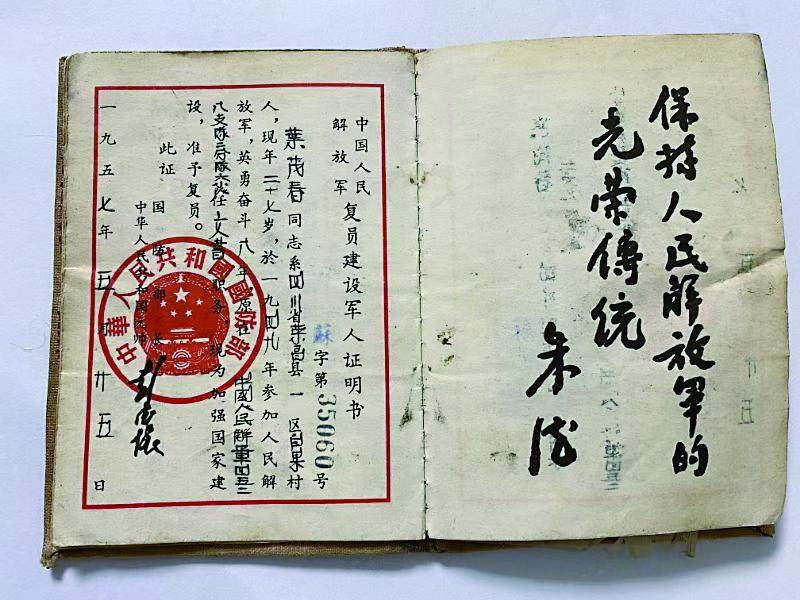 保持人民解放军的
光荣傳统
朱德
中国人民
解放军
复员建设军人证明书
蘇字第35060号
葉茂春同志系四川省县一区白果村
人,现年二十七岁,於一九四九年参加人民解
放军,英勇奋斗八年,原在中國人民解軍四五三
八支隊任上职务。现为加强国家建
设,准予复员。
此证
国防部长
中华人民共和国元帅
彭德怀
一九五七年五月廿五日
中華人民共和國國防部